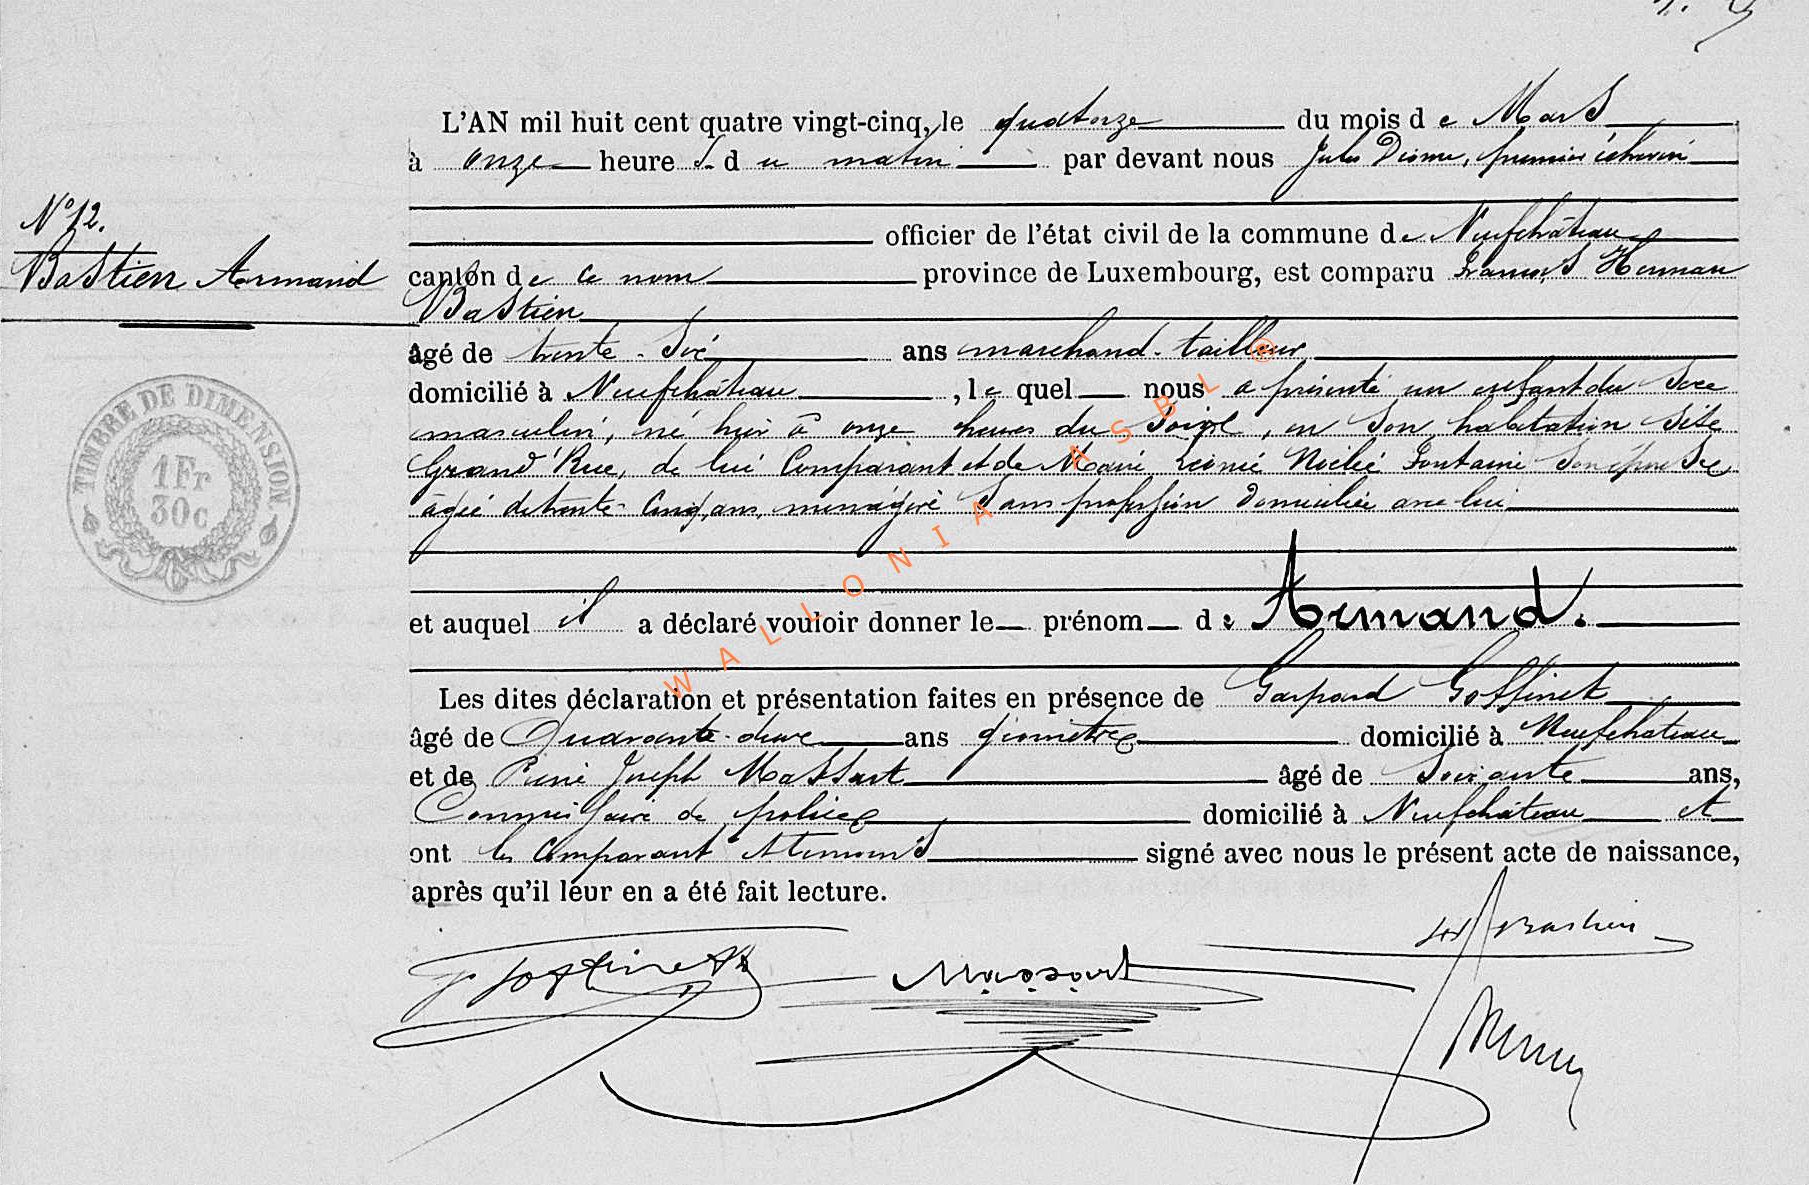 L'AN mil huit cent quatre vingt-cinq, le quatorze du mois de Mars
à onze heures du matin par devant nous Jules Diome, premier échevin
N° 12.
officier de l'état civil de la commune de Neufchâteau
Bastien Armand
canton de ce nom province de Luxembourg, est comparu François Herman
Bastien
âgé de trente-six ans marchand-tailleur
domicilié à Neufchâteau, lequel nous a présenté un enfant du sexe
masculin, né hier à onze heures du soir, en son habitation sise
Grand'Rue, de lui comparant et de Marie Noélie Fontaine son épouse
âgée de trente-cinq ans, ménagère sans profession domiciliée avec lui
et auquel il a déclaré vouloir donner le prénom de Armand.
Les dites déclaration et présentation faites en présence de Gaspard Goffinet
âgé de Quarante-deux ans géomètre domicilié à Neufchateau
et de Pierre Joseph Massart âgé de Soixante ans,
Commissaire de police domicilié à Neufchâteau et
ont les comparant et témoins signé avec nous le présent acte de naissance,
après qu'il leur en a été fait lecture.
Bastien
G Goffinet Massart
TIMBRE DE DIMENSION
1 Fr
30c
WALLONIA ASBL ®